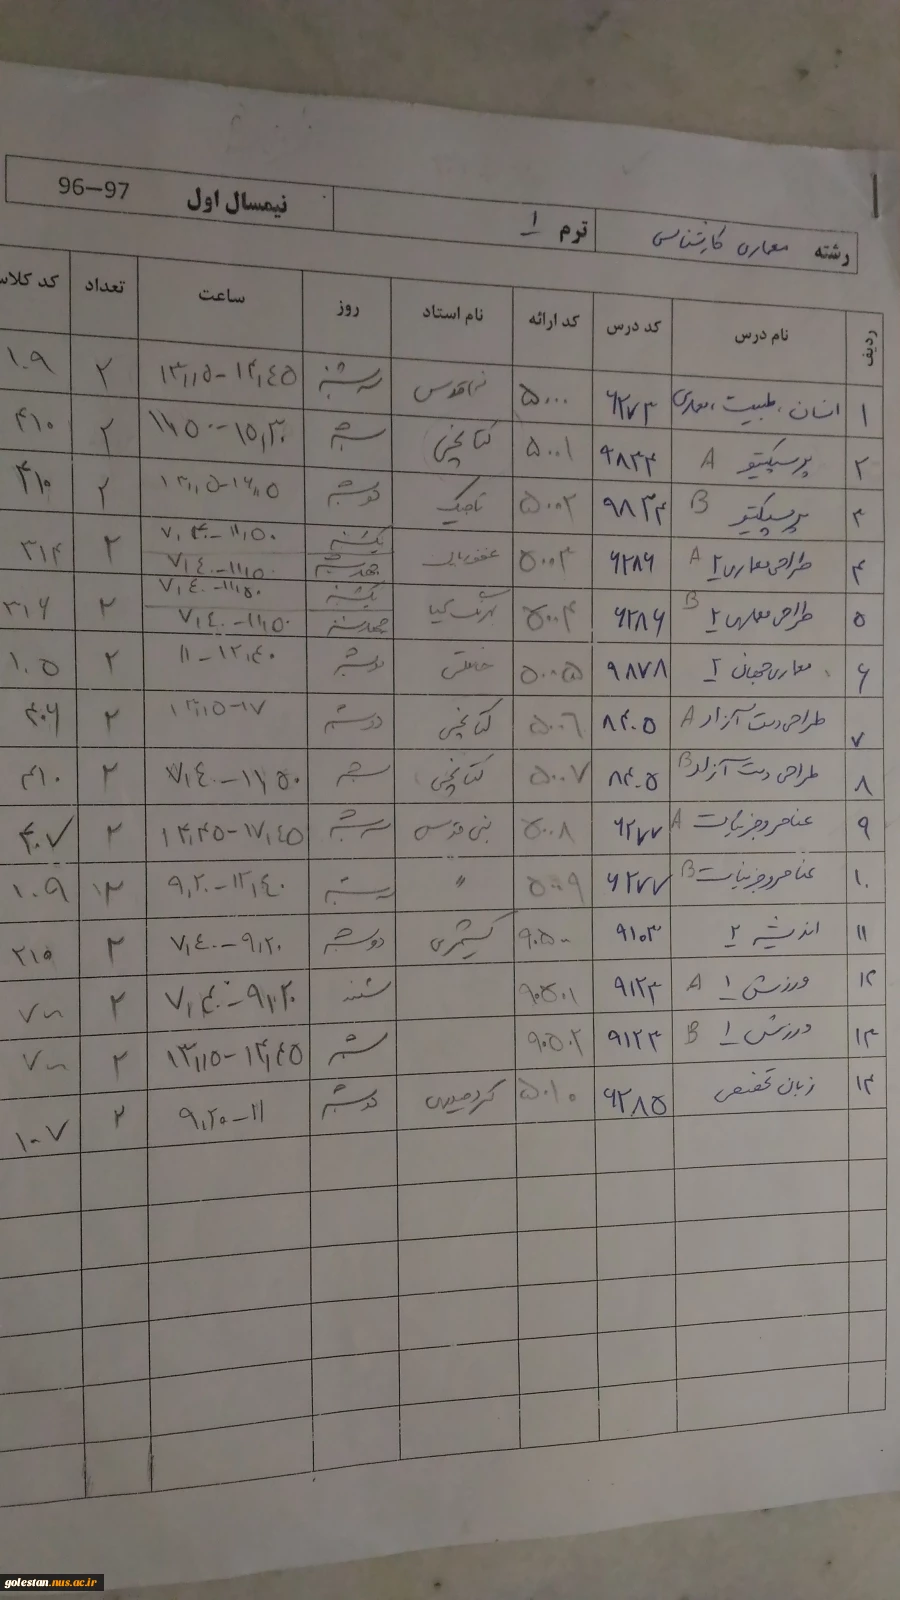 رشته معماری کارشناسی ترم ۱ نیمسال اول 96–97
ردیف نام درس کد درس کد ارائه نام استاد روز ساعت تعداد کد کلاس
۱ انسان، طبیعت، معماری ۶۲۷۳ ۵۰۰۰ سه شنبه ۱۳,۱۵-۱۴,۴۵ ۲ ۱۰۹
۲ پرسپکتیو A ۹۸۳۴ ۵۰۰۱ کتابچی شنبه ۲ ۴۱۰
۳ پرسپکتیو B ۹۸۳۴ ۵۰۰۲ تاجیک دوشنبه ۲ ۴۱۰
۴ طراحی معماری ۲ A ۶۲۸۶ ۵۰۰۳ یکشنبه ۷,۴۰-۱۱,۵۰ ۲ ۳۱۴
چهارشنبه ۷,۴۰-۱۱,۵۰
۵ طراحی معماری ۲ B ۶۲۸۶ ۵۰۰۴ یکشنبه ۷,۴۰-۱۱,۵۰ ۲ ۳۱۶
چهارشنبه ۷,۴۰-۱۱,۵۰
۶ معماری جهان ۲ ۹۸۷۸ ۵۰۰۵ دوشنبه ۱۱-۱۲,۴۰ ۲ ۱۰۵
۷ طراحی دست آزاد A ۸۴۰۵ ۵۰۰۶ کتابچی دوشنبه ۱۳,۱۵-۱۷ ۲ ۴۰۶
۸ طراحی دست آزاد B ۸۴۰۵ ۵۰۰۷ کتابچی شنبه ۷,۴۰-۱۱,۵۰ ۲ ۴۱۰
۹ عناصر و جزئیات A ۶۲۷۷ ۵۰۰۸ بنی قدس سه شنبه ۱۴,۴۵-۱۷,۴۵ ۲ ۴۰۷
۱۰ عناصر و جزئیات B ۶۲۷۷ ۵۰۰۹ " سه شنبه ۹,۲۰-۱۲,۴۰ ۱۰۹
۱۱ اندیشه ۲ ۹۱۰۳ ۹۰۵۰۰ دوشنبه ۷,۴۰-۹,۲۰ ۲ ۲۱۵
۱۲ ورزش ۱ A ۹۱۲۳ ۹۰۵۰۱ شنبه ۷,۴۰-۹,۲۰ ۲
۱۳ ورزش ۱ B ۹۱۲۳ ۹۰۵۰۲ شنبه ۱۳,۱۵-۱۴,۴۵ ۲
۱۴ زبان تخصصی ۶۲۸۵ ۵۰۱۰ دوشنبه ۹,۲۰-۱۱ ۲ ۱۰۷
golestan.nus.ac.ir